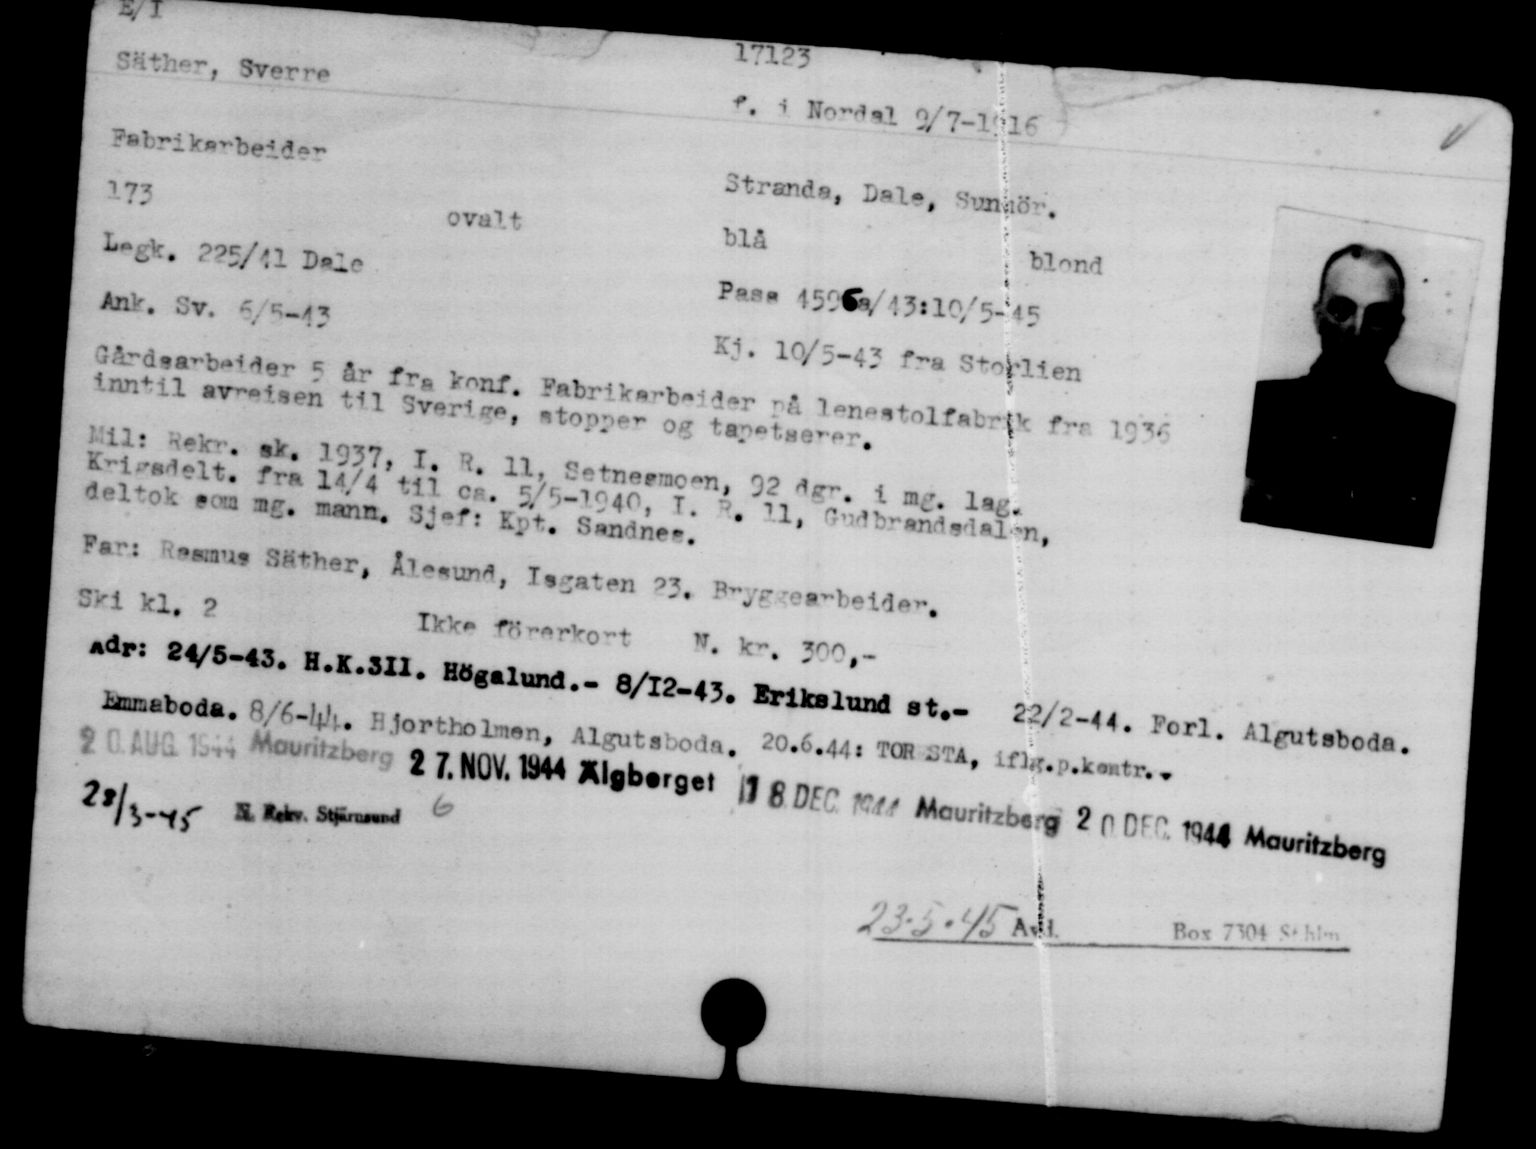 E/I
17123
Säther, Sverre
f. i Nordal 9/7-1916
Fabrikarbeider
Stranda, Dale, Sunnör.
173 ovalt blå blond
Legk. 225/41 Dale
Pass 4596a/43:10/5-45
Ank. Sv. 6/5-43
Kj. 10/5-43 fra Storlien
Gårdsarbeider 5 år fra konf. Fabrikarbeider på lenestolfabrik fra 1936
inntil avreisen til Sverige, stopper og tapetserer.
Mil: Rekr. sk. 1937, I. R. 11, Setnesmoen, 92 dgr. i mg. lag.
Krigsdelt. fra 14/4 til ca. 5/5-1940, I. R. 11, Gudbrandsdalen,
deltok som mg. mann. Sjef: Kpt. Sandnes.
Far: Rasmus Säther, Ålesund, Isgaten 23. Bryggearbeider.
Ski kl. 2 Ikke förerkort N. kr. 300,-
Adr: 24/5-43. H.K.3II. Högalund.- 8/I2-43. Erikslund st.- 22/2-44. Forl. Algutsboda.
Emmaboda. 8/6-44. Hjortholmen, Algutsboda. 20.6.44: TORSTA, iflg.p.komtr.
20. AUG. 1944 Mauritzberg 27. NOV. 1944 Älgberget 18 DEC. 1944 Mauritzberg 20 DEC. 1944 Mauritzberg
28/3-45 N. Rekv. Stjärnsund 6
23.5.45 Avd. Box 7304 Sthlm